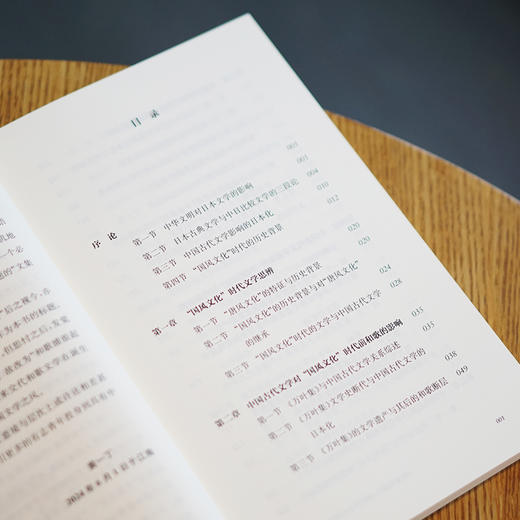 一个必
的“文集
“后之视今，亦
为本书的标题。
期文学之风。
目 录
序 论 003
第一节 中华文明对日本文学的影响 003
第二节 日本古典文学与中日比较文学的三段论 004
第三节 中国古代文学影响的日本化 010
第四节 “国风文化”时代的历史背景 012
第一章 “国风文化”时代文学思辨 020
第一节 “唐风文化”的特征与历史背景 020
第二节 “国风文化”的历史背景与对“唐风文化”
的继承 024
第三节 “国风文化”时代的文学与中国古代文学 028
第二章 中国古代文学对“国风文化”时代前和歌的影响 035
第一节 《万叶集》与中国古代文学关系综述 035
第二节 《万叶集》文学史断代与中国古代文学的
日本化 038
第三节 《万叶集》的文学遗产与其后的和歌断层 049
001